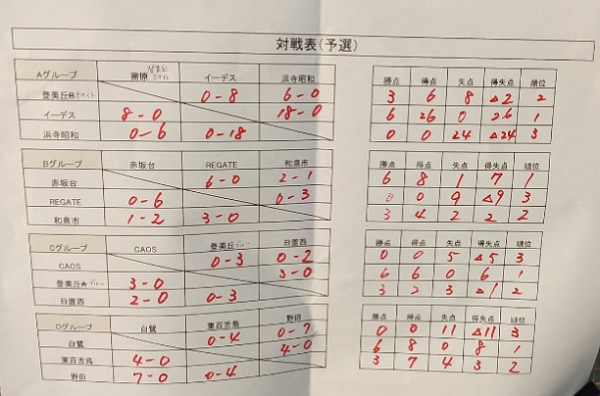 対戦表(予選)
Aグループ イーデス 浜寺昭和 勝点 得点 失点 得失点 順位
登美丘 0-8 6-0 3 6 8 △2 2
イーデス 8-0 18-0 6 26 0 26 1
浜寺昭和 0-6 0-18 0 0 24 △24 3
Bグループ 赤坂台 REGATE 和泉市 勝点 得点 失点 得失点 順位
赤坂台 6-0 2-1 6 8 1 7 1
REGATE 0-6 0-3 0 9 △9 3
和泉市 1-2 3-0 3 4 2 2 2
Cグループ CAOS 登美丘 日置西 勝点 得点 失点 得失点 順位
CAOS 0-3 0-2 0 0 5 △5 3
登美丘 3-0 3-0 6 6 0 6 1
日置西 2-0 0-3 3 2 3 △1 2
Dグループ 白鷺 東百舌鳥 野田 勝点 得点 失点 得失点 順位
白鷺 0-4 0-7 0 0 11 △11 3
東百舌鳥 4-0 4-0 6 8 0 8 1
野田 7-0 0-4 3 7 4 3 2